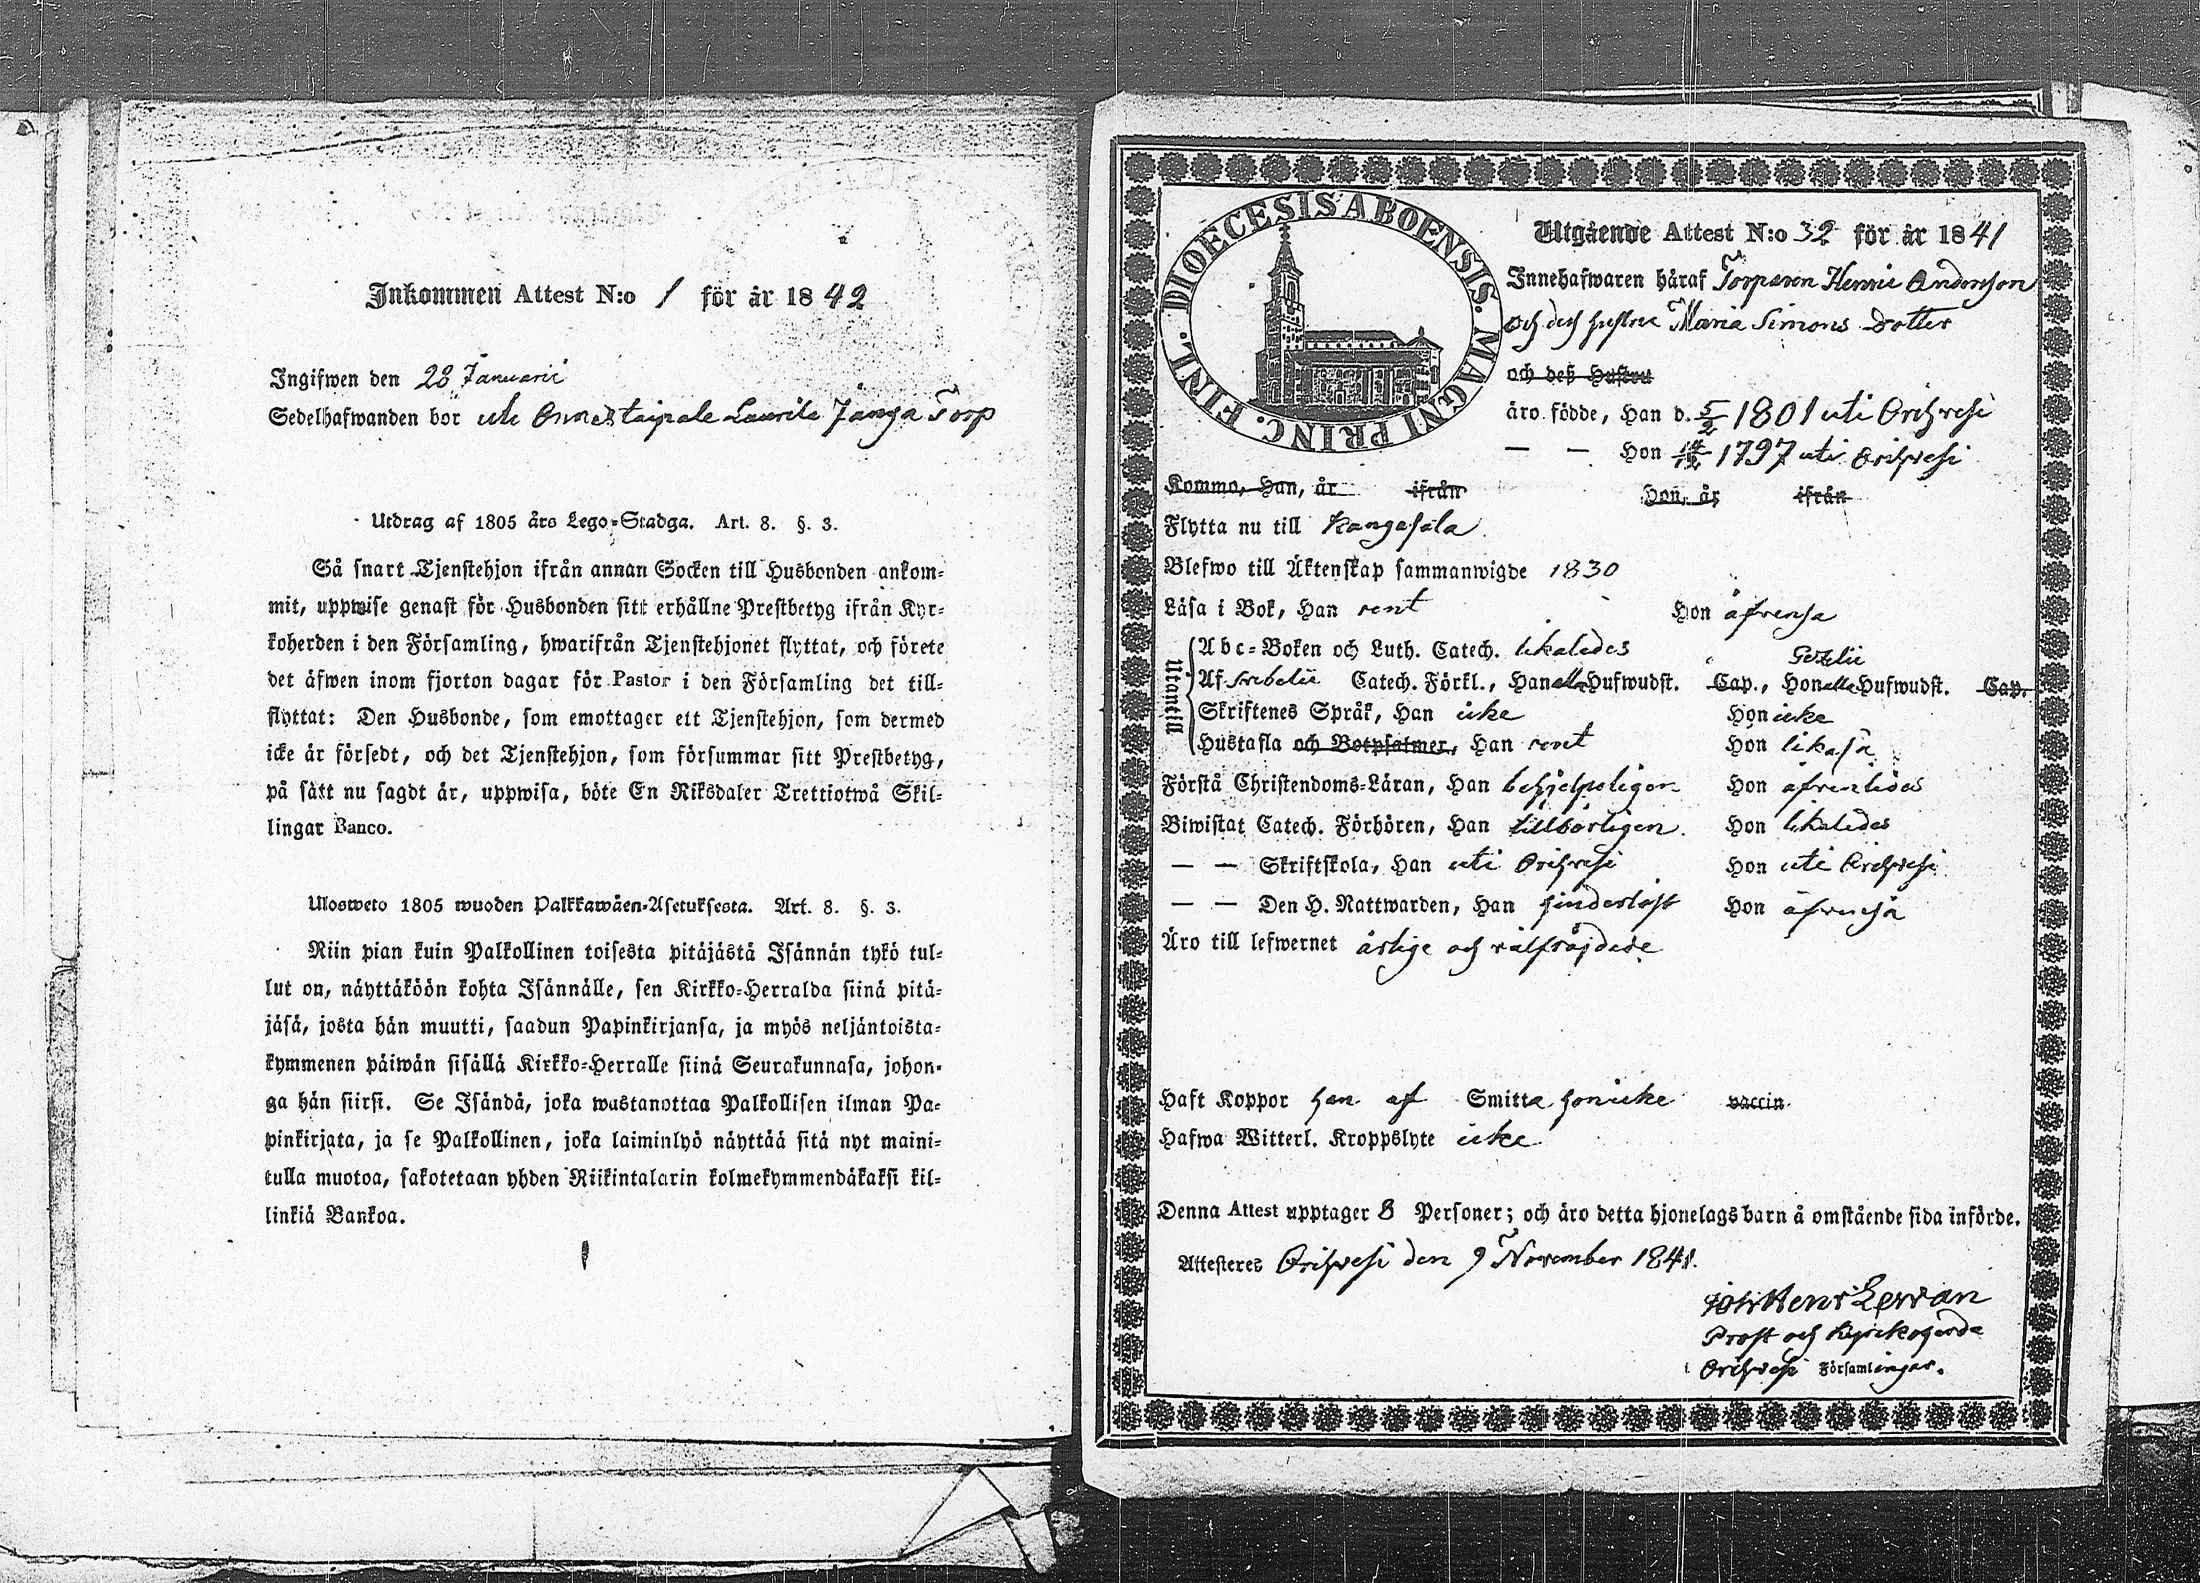 Inkommen Attest N:o 1 för år 1842
Ingifwen den 28 Januarii
Sedelhafwanden bor uti Onnistaipale Laurila Janga Torp
Utdrag af 1805 års Lego-Stadga. Art. 8. §. 3.
Så snart Tjenstehjon ifrån annan Socken till Husbonden ankom-
mit, uppwise genast för Husbonden sitt erhållne Prestbetyg ifrån Kyr-
koherden i den Församling, hwarifrån Tjenstehjonet flyttat, och förete
det äfwen inom fjorton dagar för Pastor i den Församling det till-
flyttat: Den Husbonde, som emottager ett Tjenstehjon, som dermed
icke är försedt, och det Tjenstehjon, som försummar sitt Prestbetyg,
på sätt nu sagdt är, uppwisa, böte En Riksdaler Trettiotwå Skil-
lingar Banco.
Ulosweto 1805 wuoden Palkkawäen-Asetuksesta. Art. 8. §. 3.
Niin pian kuin Palkollinen toisesta pitäjästä Isännän tykö tul-
lut on, näyttäköön kohta Isännälle, sen Kirkko-Herralda siinä pitä-
jäsä, josta hän muutti, saadun Papinkirjansa, ja myös neljäntoista-
kymmenen päiwän sisällä Kirkko-Herralle siinä Seurakunnasa, johon-
ga hän siirsi. Se Isändä, joka wastanottaa Palkollisen ilman Pa-
pinkirjata, ja se Palkollinen, joka laiminlyö näyttää sitä nyt maini-
tulla muotoa, sakotetaan yhden Riikintalarin kolmekymmendäkaksi kil-
linkiä Bankoa.
DIOECESIS ABOENSIS. MAGNI PRINC. FINL.
Utgående Attest N:o 32 för år 1841
Innehafwaren häraf Torparen Henric Andersson
och dess hustru Maria Simons Dotter
och deß Hustru
äro födde, Han d. 5/2 1801 uti Orihvesi
— — Hon 1797 uti Orihvesi
Kommo, Han, år ifrån Hon, år ifrån
Flytta nu till Kangasala
Blefwo till Äktenskap sammanwigde 1830
Läsa i Bok, Han rent Hon äfvenså
Utantill
Abc-Boken och Luth. Catech. likaledes
Gezelii
Af Svebelii Catech. Förkl., Han alla Hufwudst. Cap., Hon alla Hufwudst. Cap.
Skriftenes Språk, Han icke Hon icke
Hustafla och Botpsalmer, Han rent Hon likaså
Förstå Christendoms-Läran, Han behjelpeligen Hon äfvenledes
Biwistat Catech. Förhören, Han tillbörligen Hon likaledes
— — Skriftskola, Han uti Orihvesi Hon uti Orihvesi
— — Den H. Nattwarden, Han hinderlöst Hon äfvenså
Äro till lefwernet ärlige och välfräjdade
Haft Koppor han af Smitta hon icke vaccin
Hafwa Witterl. Kroppslyte icke
Denna Attest upptager 8 Personer; och äro detta hjonelags barn å omstående sida införde.
Attesteres Orihvesi den 9 November 1841.
Joh: Henr Levvan
Prost och Kyrckoherde
i Orihvesi Församlingar.